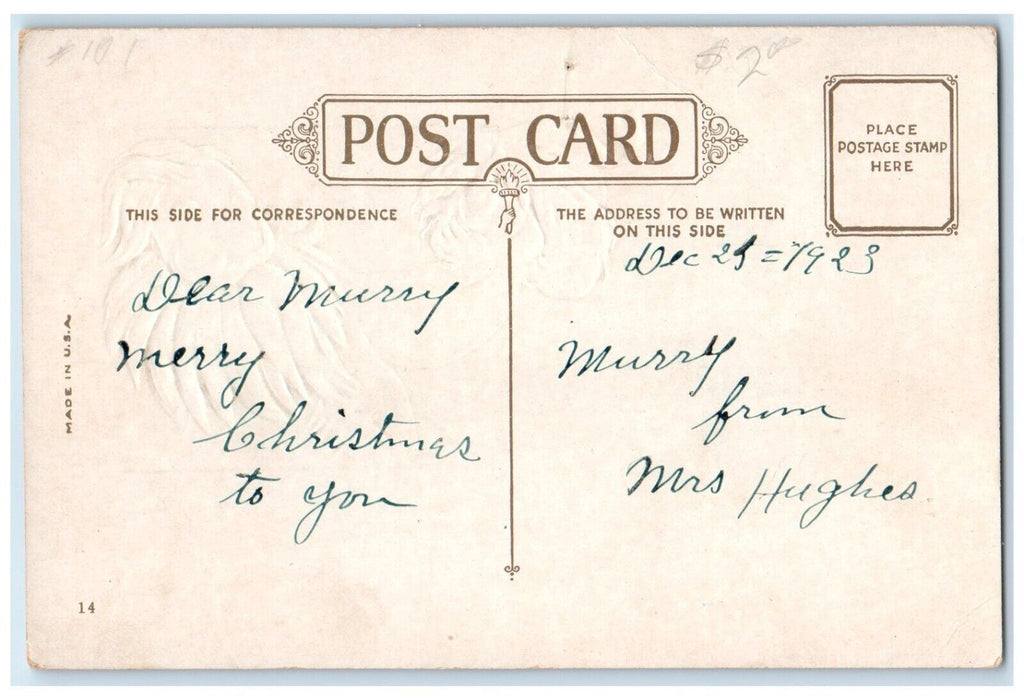 #101
$.2.00
POST CARD
PLACE
POSTAGE STAMP
HERE
THIS SIDE FOR CORRESPONDENCE
THE ADDRESS TO BE WRITTEN
ON THIS SIDE
Dec 25=1923
Dear Murry
Merry
Christmas
to you
Murry
from
Mrs Hughes
MADE IN U.S.A.
14